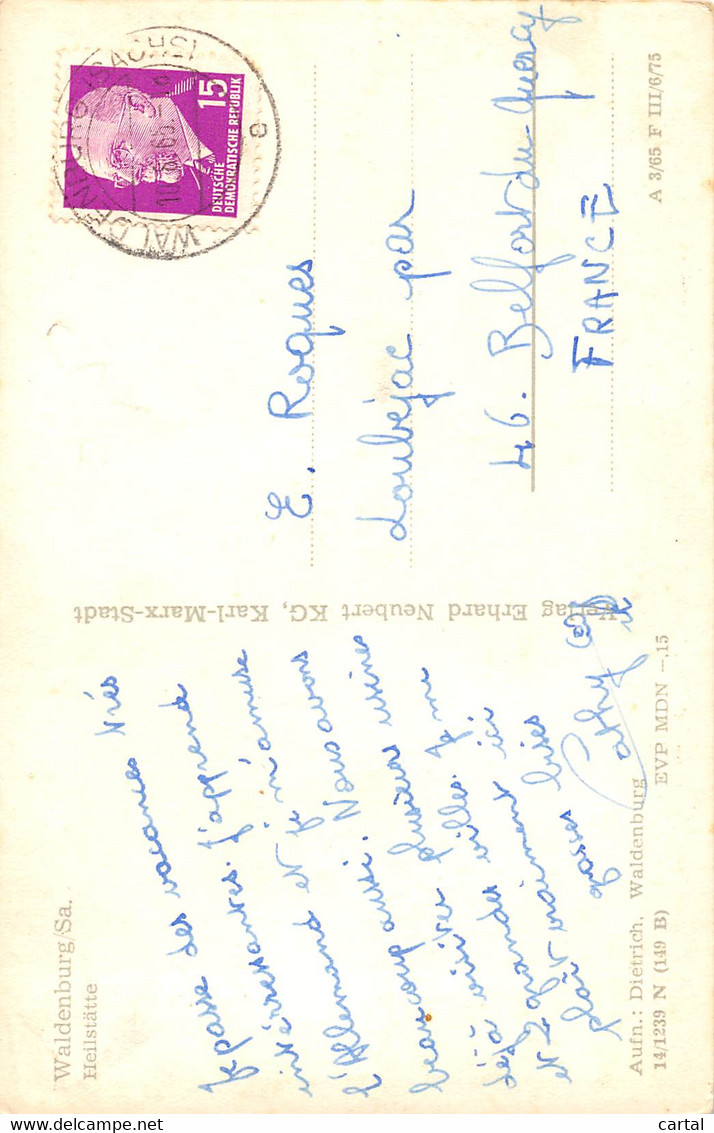 Waldenburg/Sa.
Heilstätte
Je passe des vacances très
intéressantes. J'apprend
l'Allemand et je m'amuse
beaucoup aussi. Nous avons
déjà visiter plusieurs usines
et 2 grandes villes. Je me
plaît vraiment ici
grosses bises
Cathy
Aufn.: Dietrich, Waldenburg
14/1239 N (149 B) EVP MDN -,15
Verlag Erhard Neubert KG, Karl-Marx-Stadt
WALDENBURG (SACHS)
e
15
DEUTSCHE
DEMOKRATISCHE REPUBLIK
E. Roques
Loubéjac par
46. Belfort-du-Quercy
FRANCE
A 3/65 F III/6/75
cartal